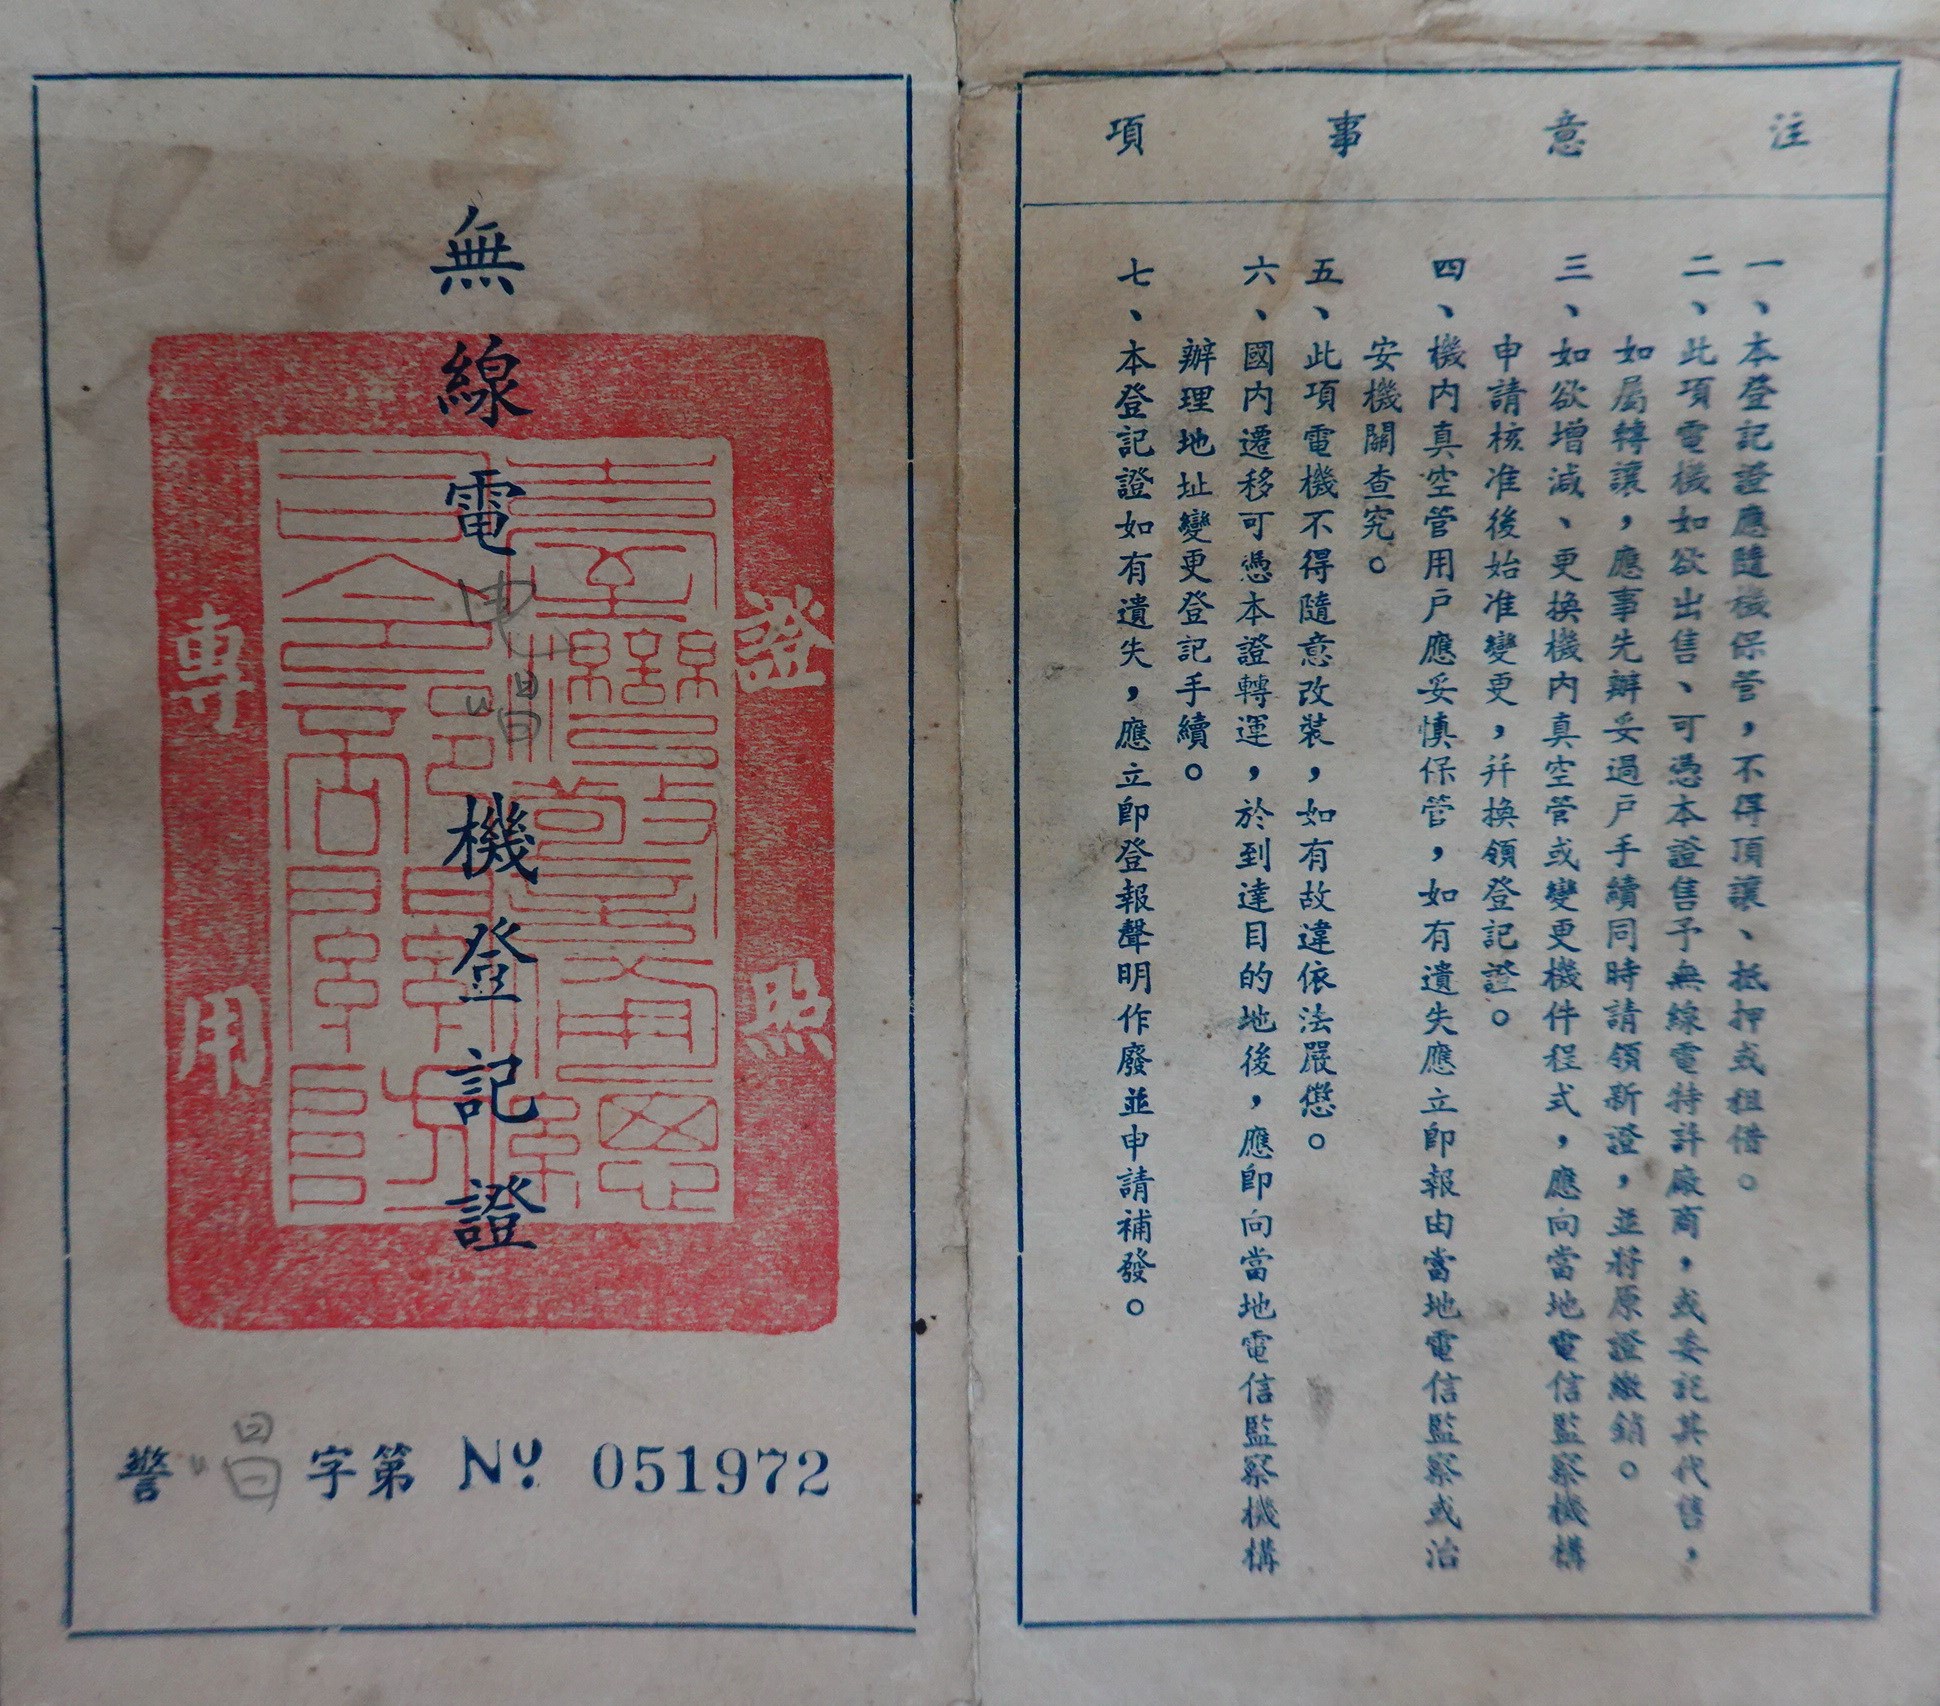 注意事項
一、本登記證應隨機保管，不得頂讓、抵押或租借。
二、此項電機如欲出售、可憑本證售予無線電特許廠商，或委託其代售，
如屬轉讓，應事先辦妥過戶手續同時請領新證，並將原證繳銷。
三、如欲增減、更換機內真空管或變更機件程式，應向當地電信監察機構
申請核准後始准變更，并換領登記證。
四、機內真空管用戶應妥慎保管，如有遺失應立即報由當地電信監察或治
安機關查究。
五、此項電機不得隨意改裝，如有故違依法嚴懲。
六、國內遷移可憑本證轉運，於到達目的地後，應即向當地電信監察機構
辦理地址變更登記手續。
七、本登記證如有遺失，應立即登報聲明作廢並申請補發。
無線電機登記證
證照
專用
唱
警唱字第 No. 051972